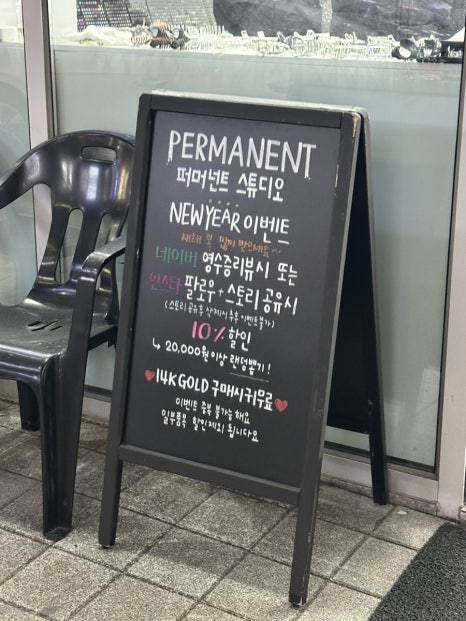 PERMANENT
퍼머넌트 스튜디오
NEW YEAR 이벤트
새해 복 많이 받으세요~
네이버 영수증리뷰시 또는
인스타 팔로우+스토리 공유시
(스토리 공유후 삭제시 추후 이벤트불가)
10% 할인
↳ 20,000원 이상 랜덤뽑기!
♥14K GOLD 구매시 귀무료♥
이벤트 중복 불가능해요
일부품목 할인제외 됩니다요